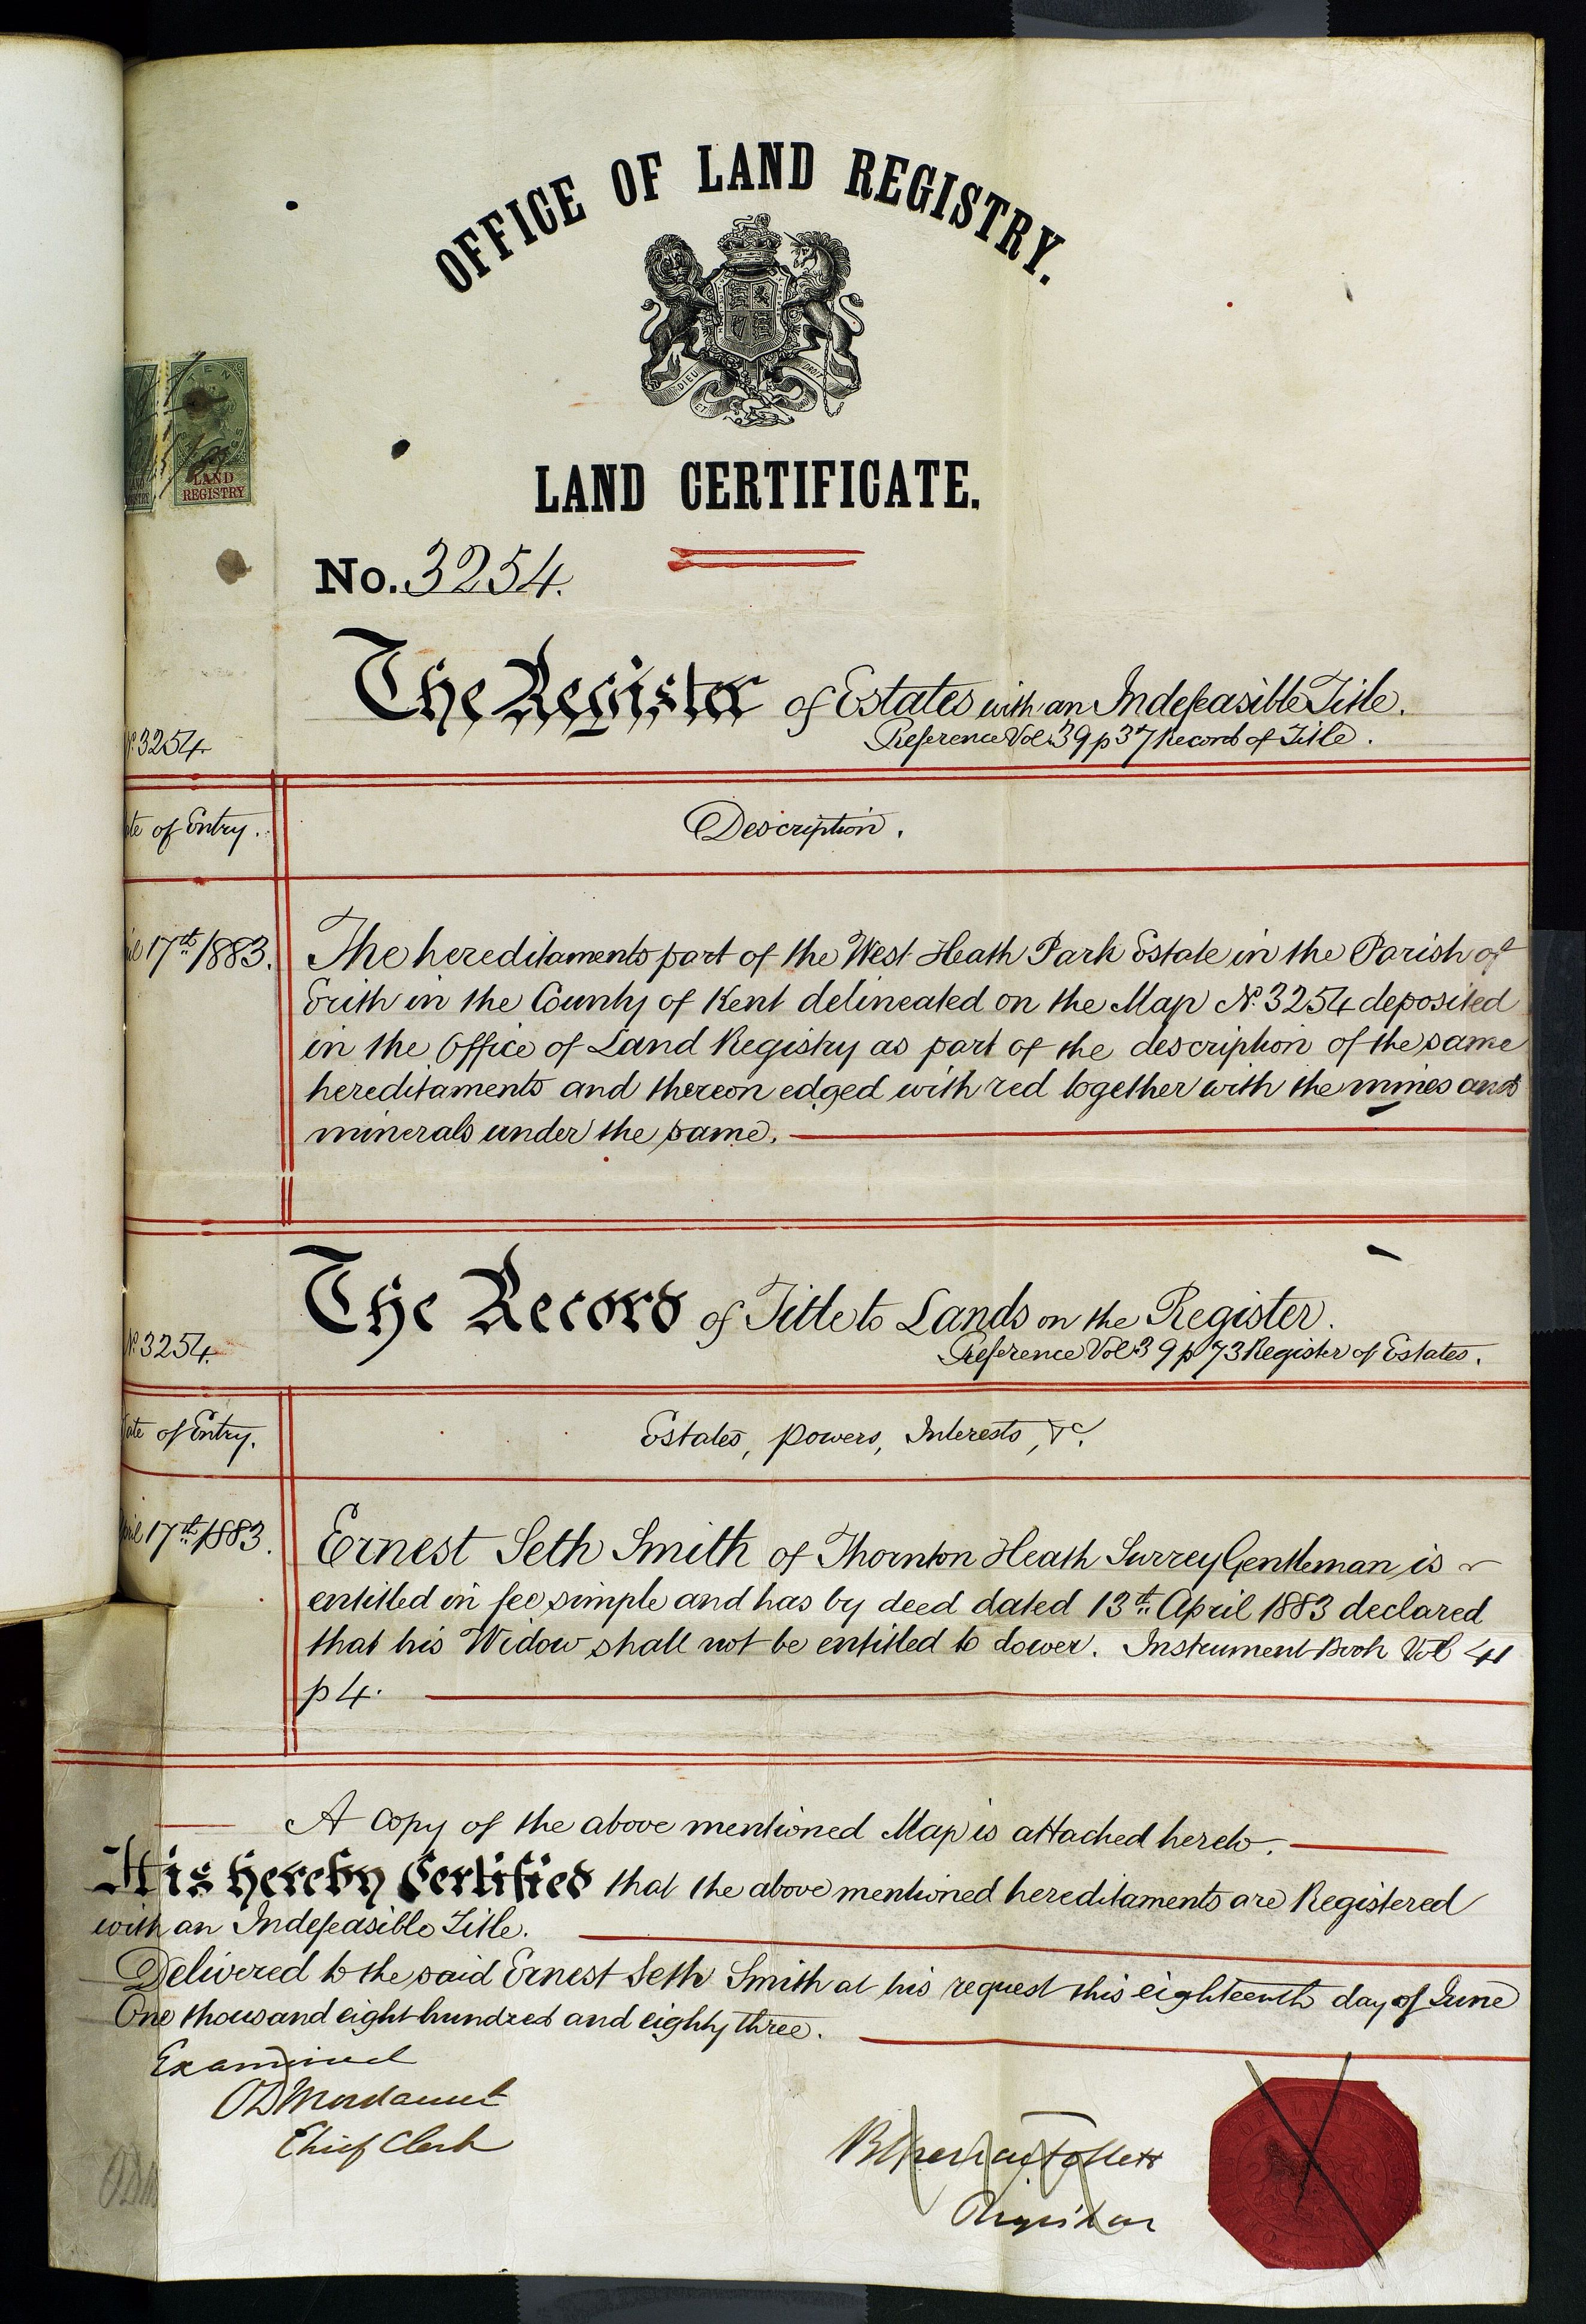 OFFICE OF LAND REGISTRY.
DIEU ET DROIT
LAND CERTIFICATE.
TEN
LAND REGISTRY
No. 3254.
The Register of Estates with an Indefeasible Title.
Reference Vol 39 p 37 Record of Title.
No. 3254
te of Entry.
Description.
il 17th 1883.
The hereditaments part of the West Heath Park Estate in the Parish of
Erith in the County of Kent delineated on the Map No. 3254 deposited
in the Office of Land Registry as part of the description of the same
hereditaments and thereon edged with red together with the mines and
minerals under the same.
The Record of Title to Lands on the Register.
Reference Vol 39 p 73 Register of Estates.
No. 3254.
ate of Entry.
Estates, powers, Interests, &c.
ril 17th 1883.
Ernest Seth Smith of Thornton Heath Surrey Gentleman is
entitled in fee simple and has by deed dated 13th April 1883 declared
that his Widow shall not be entitled to dower. Instrument Book Vol 41
p 4.
A copy of the above mentioned Map is attached hereto.
It is hereby Certified that the above mentioned hereditaments are Registered
with an Indefeasible Title.
Delivered to the said Ernest Seth Smith at his request this eighteenth day of June
One thousand eight hundred and eighty three.
Examined
O D Mordaunt
Chief Clerk
Follett
Registrar